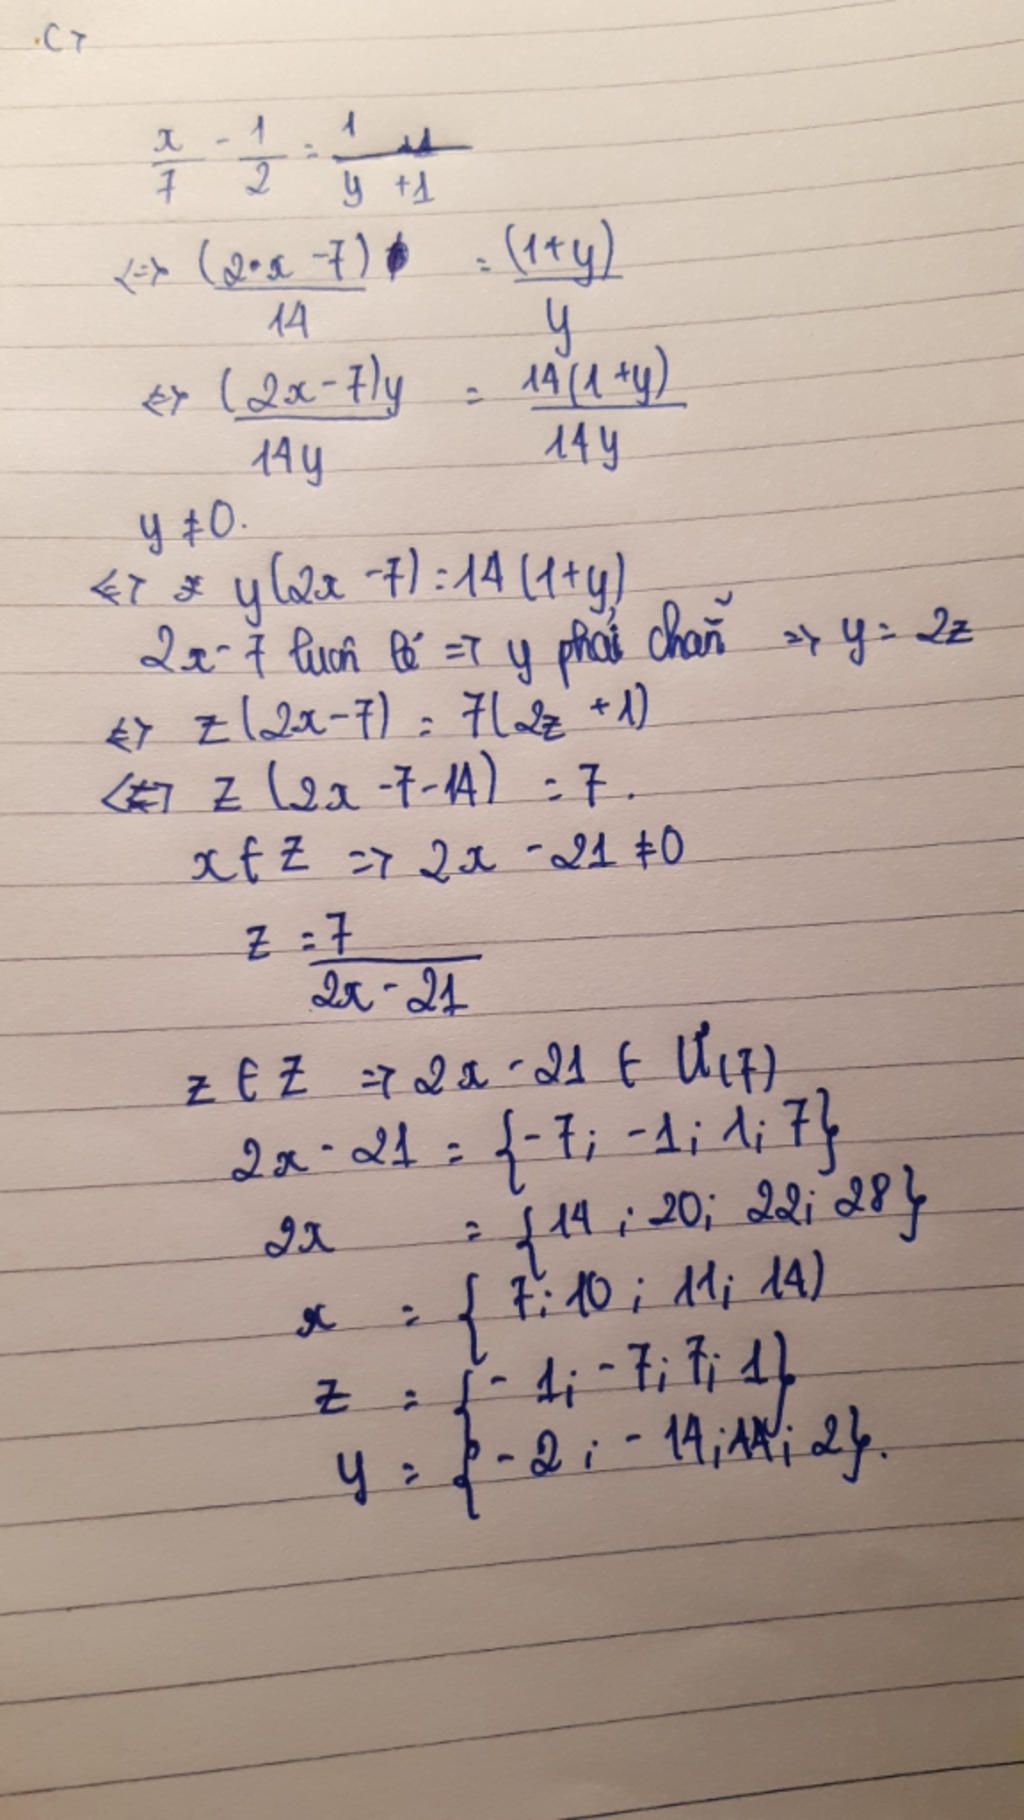 C7
x/7 - 1/2 = 1/y + 1
<=> (2·x - 7)/14 = (1+y)/y
<=> (2x - 7)y/14y = 14(1+y)/14y
y ≠ 0.
<=> y(2x - 7) = 14(1+y)
2x - 7 luôn lẻ => y phải chẵn => y = 2z
<=> z(2x - 7) = 7(2z + 1)
<=> z(2x - 7 - 14) = 7.
x ∈ Z => 2x - 21 ≠ 0
z = 7/(2x - 21)
z ∈ Z => 2x - 21 ∈ Ư(7)
2x - 21 = {-7; -1; 1; 7}
2x = {14; 20; 22; 28}
x = {7; 10; 11; 14)
z = {-1; -7; 7; 1}
y = {-2; -14; 14; 2}.